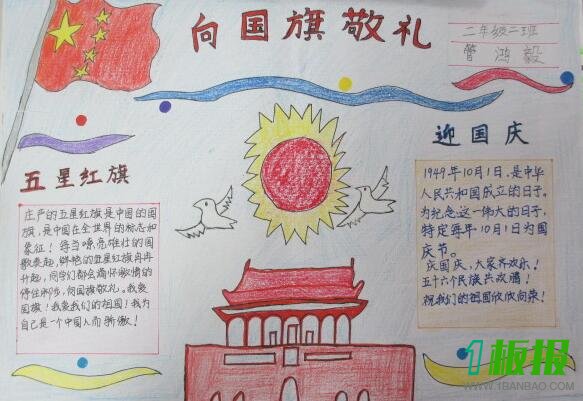 向国旗敬礼
二年级二班
管鸿毅
五星红旗
庄严的五星红旗是中国的国
旗,是中国在全世界的标志和
象征!每当嘹亮雄壮的国
歌奏起,鲜艳的五星红旗冉冉
升起,同学们都会满怀激情的
停住脚步,向国旗敬礼。我爱
国旗!我爱我们的祖国!我为
自己是一个中国人而骄傲!
迎国庆
1949年10月1日,是中华
人民共和国成立的日子。
为纪念这一伟大的日子,
特定每年10月1日为国
庆节。
庆国庆,大家齐欢乐!
五十六个民族共欢腾!
祝我们的祖国欣欣向荣!
1板报
WWW.1BANBAO.COM